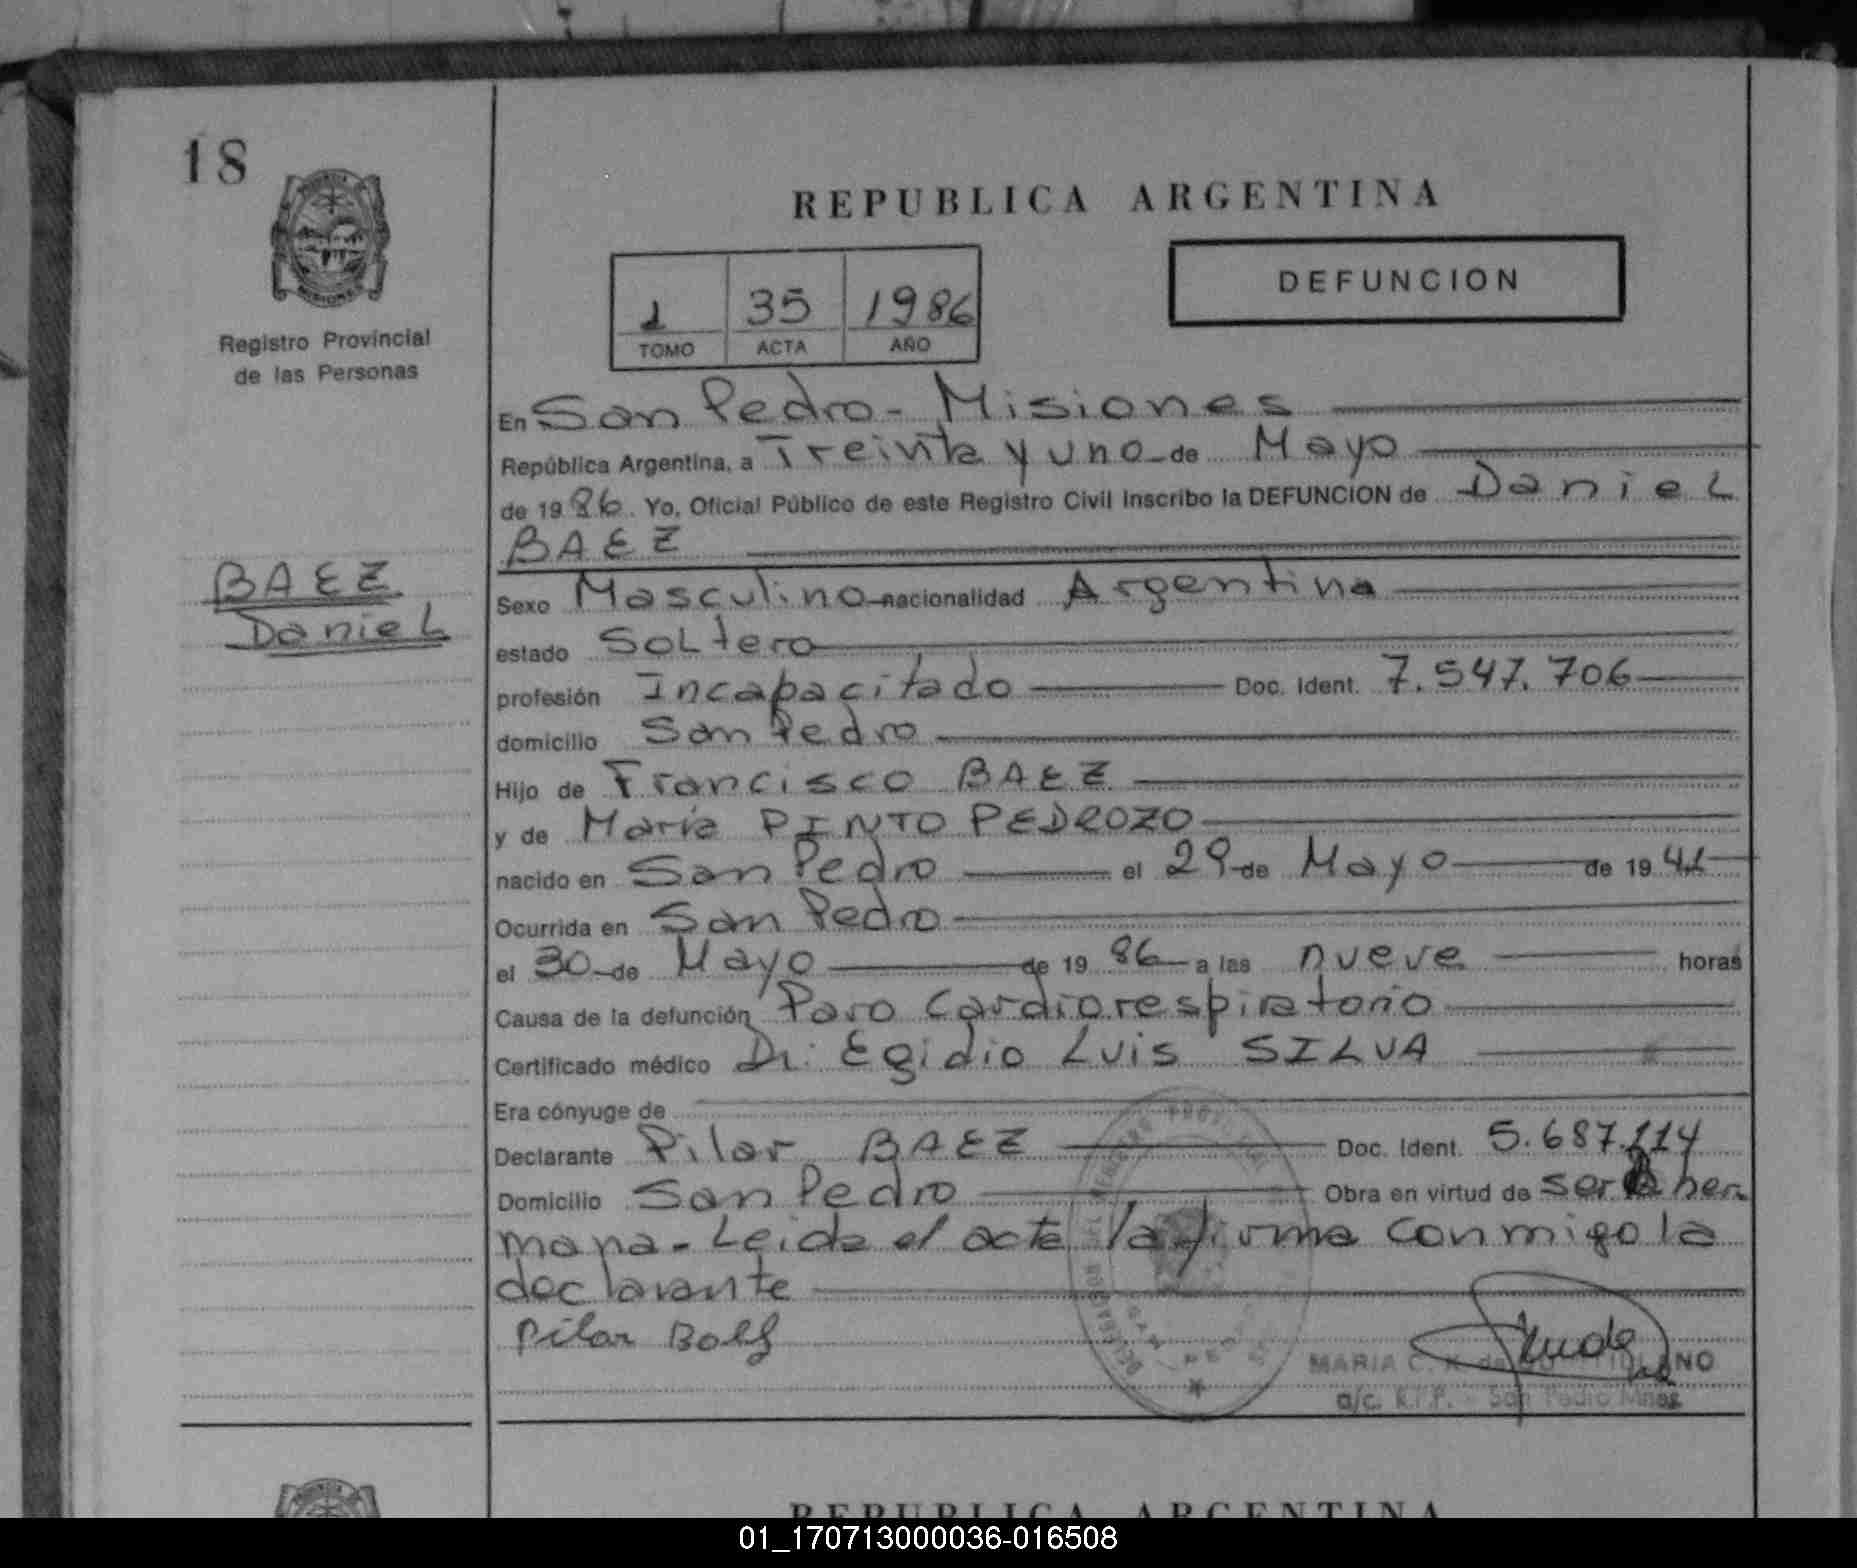 18
Registro Provincial
de las Personas
REPUBLICA ARGENTINA
1 35 1986
TOMO ACTA AÑO
DEFUNCION
BAEZ
Daniel
En San Pedro - Misiones
República Argentina, a Treinta y uno de Mayo
de 1986. Yo, Oficial Público de este Registro Civil inscribo la DEFUNCION de Daniel
BAEZ
Sexo Masculino nacionalidad Argentina
estado Soltero
profesión Incapacitado Doc. Ident. 7.547.706
domicilio San Pedro
Hijo de Francisco BAEZ
y de María PINTO PEDROZO
nacido en San Pedro el 29 de Mayo de 1941
Ocurrida en San Pedro
el 30 de Mayo de 1986 a las nueve horas
Causa de la defunción Paro Cardiorespiratorio
Certificado médico Dr. Egidio Luis SILVA
Era cónyuge de
Declarante Pilar BAEZ Doc. Ident. 5.687.114
Domicilio San Pedro Obra en virtud de ser her
mana - Leida el acta la firma conmigo la
declarante
Pilar
MARIA C.
a/c. San Pedro Mnes
REPUBLICA ARGENTINA
01_170713000036-016508